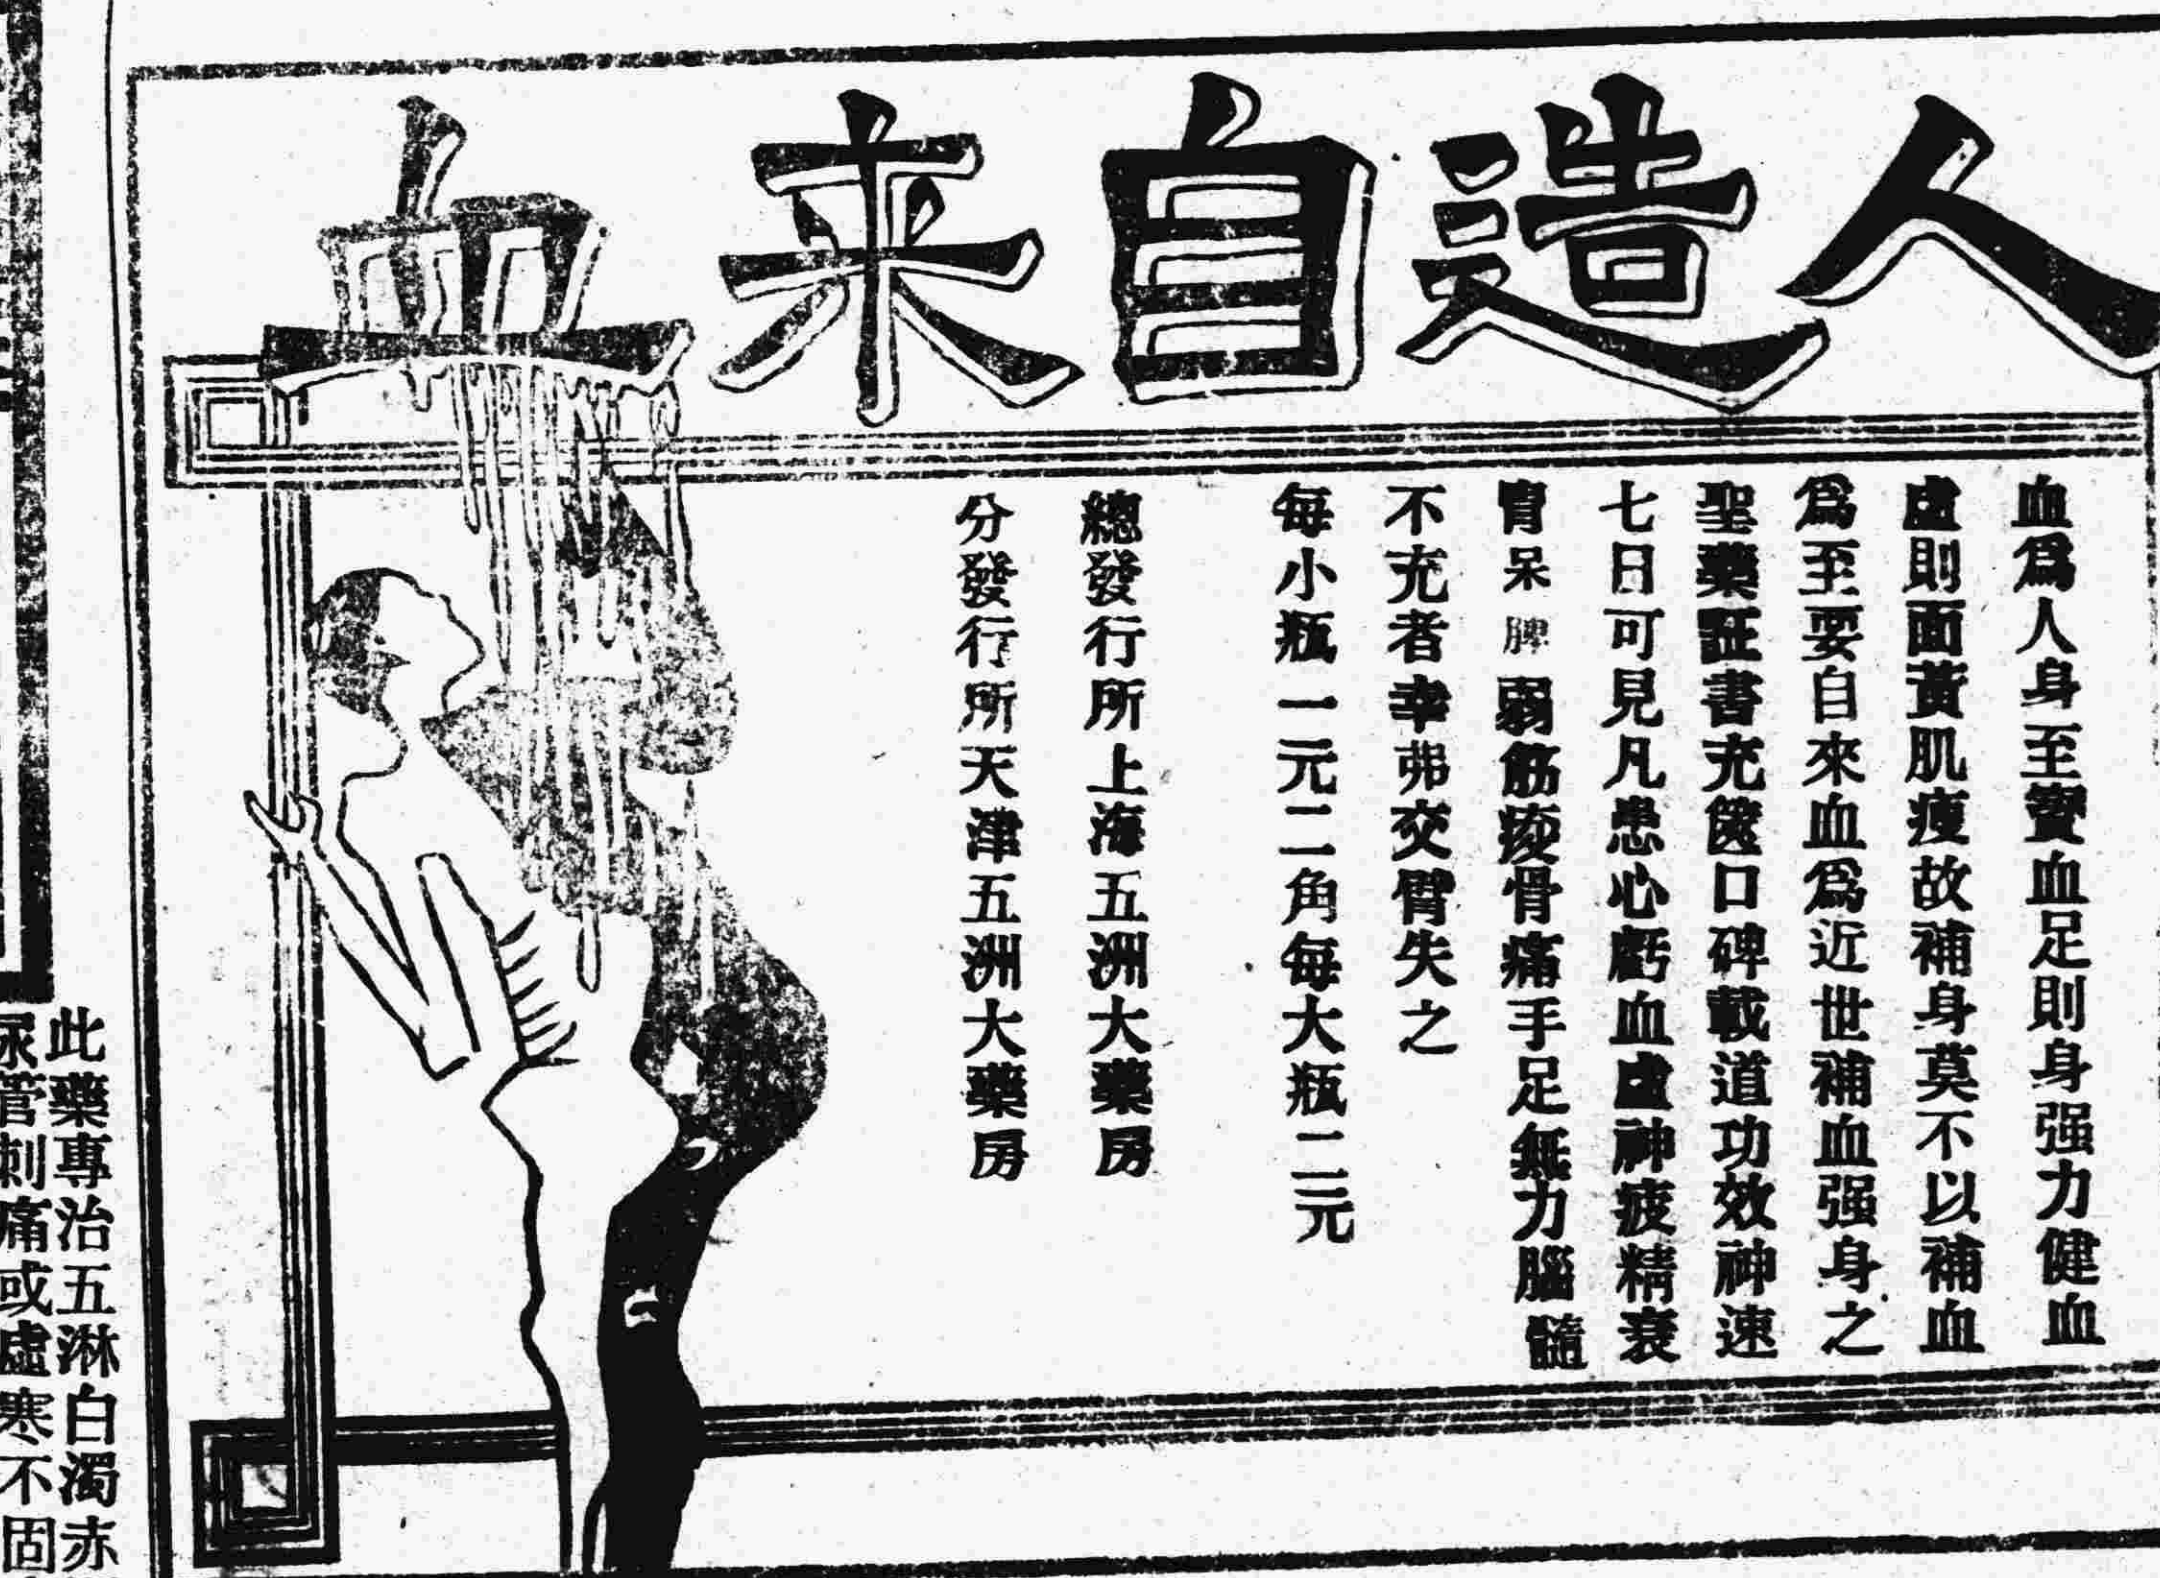 人造自来血
血爲人身至寶血足則身强力健血
虛則面黃肌瘦故補身莫不以補血
爲至要自來血爲近世補血强身之
聖藥証書充篋口碑載道功效神速
七日可見凡患心虧血虛神疲精衰
胃呆脾弱筋痠骨痛手足無力腦髓
不充者幸弗交臂失之
每小瓶一元二角每大瓶二元
總發行所上海五洲大藥房
分發行所天津五洲大藥房
此藥專治五淋白濁赤
尿管刺痛或虛寒不固